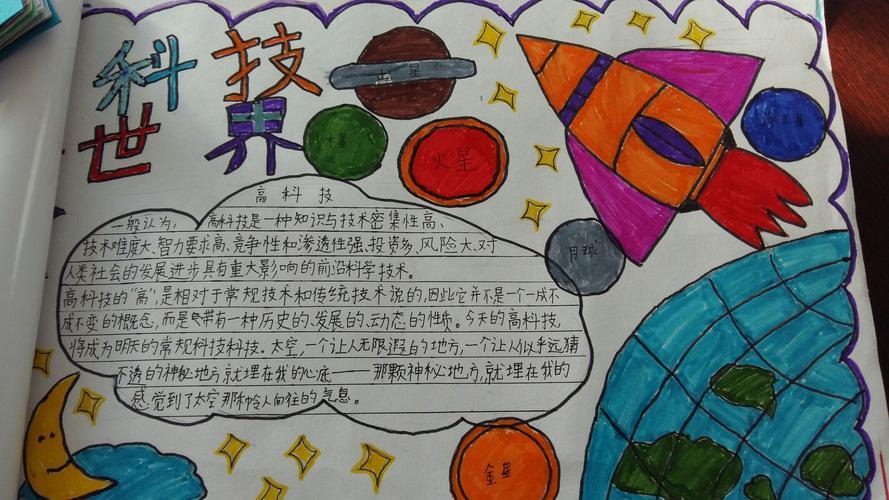 科技
世界
土星
木星
火星
海王星
月球
高科技
一般认为,高科技是一种知识与技术密集性高、
技术难度大、智力要求高、竞争性和渗透性强、投资多、风险大、对
人类社会的发展进步具有重大影响的前沿科学技术。
高科技的“高”,是相对于常规技术和传统技术说的,因此它并不是一个一成不
成不变的概念,而是带有一种历史的、发展的、动态的性质。今天的高科技,
将成为明天的常规科技科技。太空,一个让人无限遐的地方,一个让人似乎远猜
不透的神秘地方,就埋在我的心底——那颗神秘地方,就埋在我的
感觉到了太空那种令人向往的气息。
金星